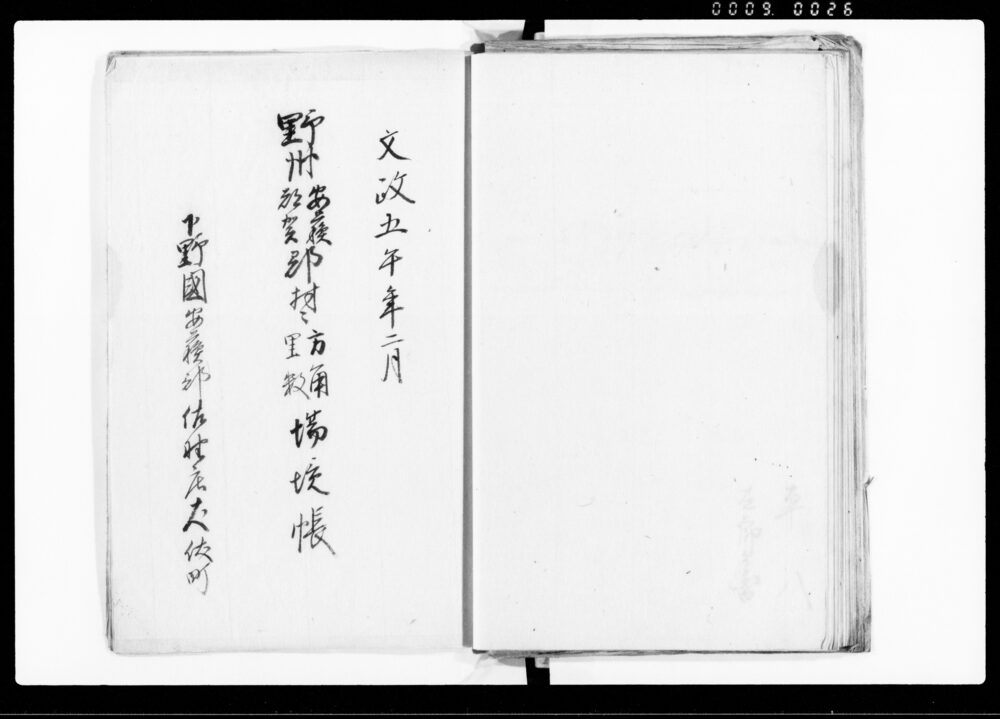 0009 0026
文政五午年二月
野州安蘇郡都賀郡村々方角里数場境帳
下野國安蘇郡佐野庄犬伏町